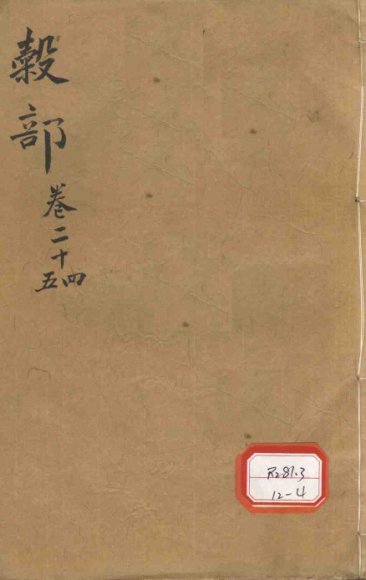 穀部
卷二十四五
R281.3
12-4